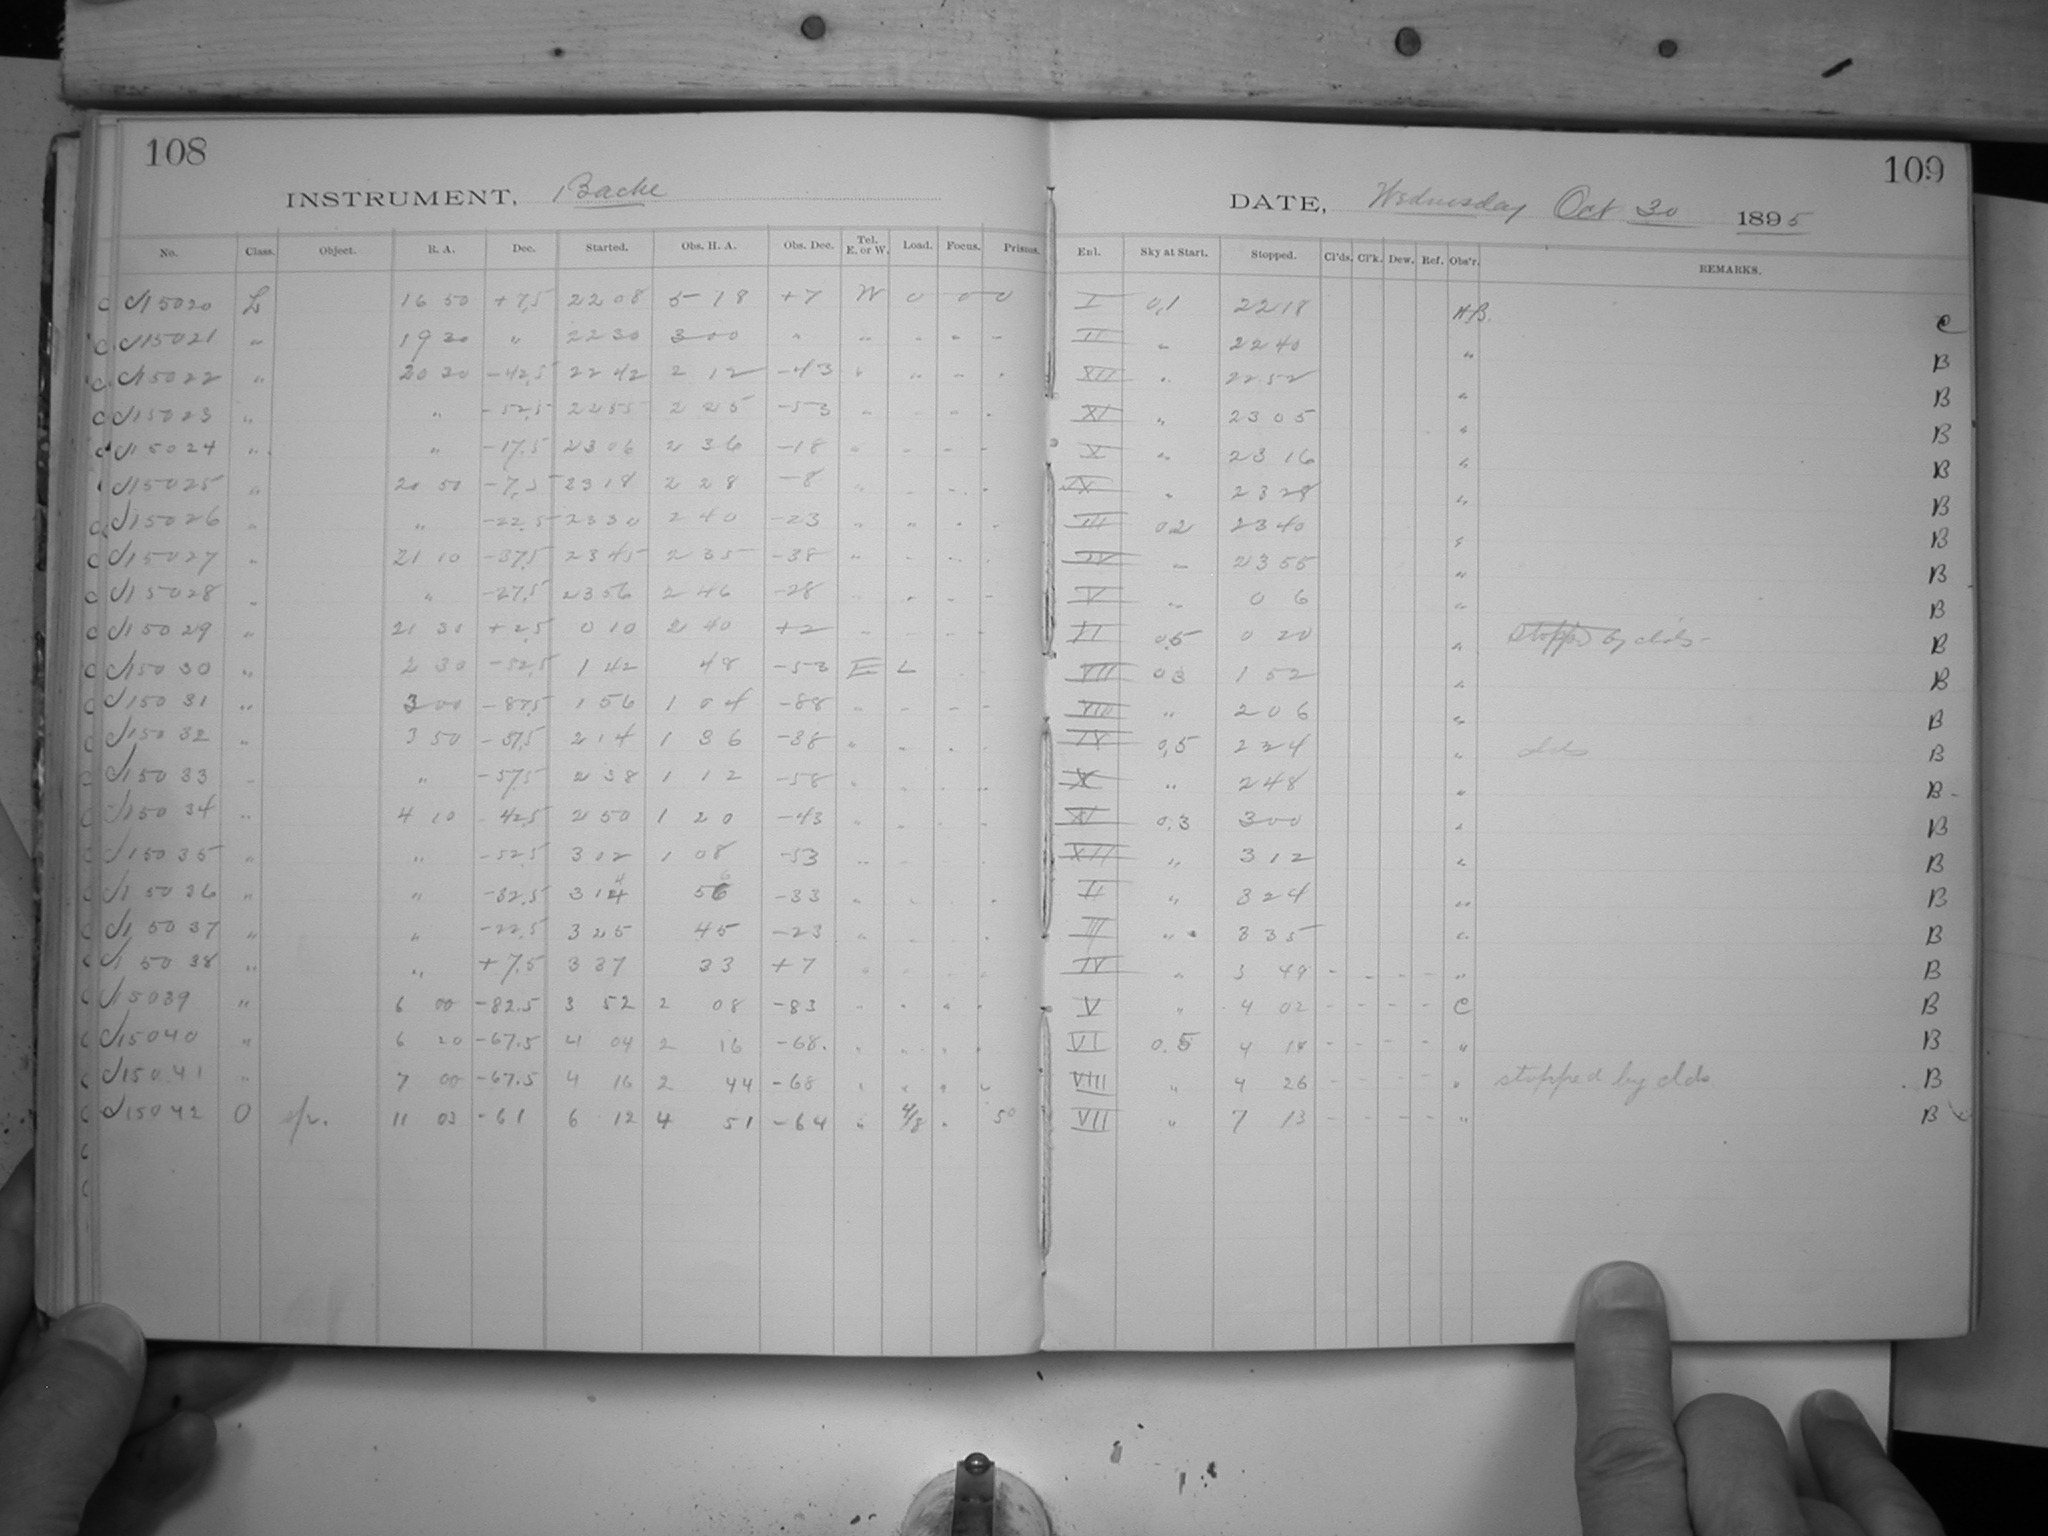 108
INSTRUMENT, Bache
No. Class. Object. R. A. Dec. Started. Obs. H. A. Obs. Dec. Tel. E. or W. Load. Focus. Prisms.
15020 L 16 50 +7,5 22 08 5 18 +7 W 0 0 0
15021 " 19 30 " 22 30 3 00 " " " " "
15022 " 20 30 -42,5 22 42 2 12 -43 " " " "
15023 " " -52,5 22 55 2 25 -53 " " " "
15024 " " -17,5 23 06 2 36 -18 " " " "
15025 " 20 50 -7,5 23 18 2 28 -8 " " " "
15026 " " -22,5 23 30 2 40 -23 " " " "
15027 " 21 10 -37,5 23 45 2 35 -38 " " " "
15028 " " -27,5 23 56 2 46 -28 " " " "
15029 " 21 30 +2,5 0 10 2 40 +2 " " " "
15030 " 2 30 -52,5 1 42 48 -53 E L
15031 " 3 00 -87,5 1 56 1 04 -88 " " " "
15032 " 3 50 -37,5 2 14 1 36 -38 " " " "
15033 " " -57,5 2 38 1 12 -58 " " " "
15034 " 4 10 -42,5 2 50 1 20 -43 " " " "
15035 " " -52,5 3 02 1 08 -53 " " " "
15036 " " -32,5 3 14 56 -33 " " " "
15037 " " -22,5 3 25 45 -23 " " " "
15038 " " +7,5 3 37 33 +7 " " " "
15039 " 6 00 -82.5 3 52 2 08 -83 " " " "
15040 " 6 20 -67.5 4 04 2 16 -68. " " " "
15041 " 7 00 -67.5 4 16 2 44 -68 " " " "
15042 O sp. 11 03 -61 6 12 4 51 -64 " 4/8 " 50
109
DATE, Wednesday Oct 30 1895
Enl. Sky at Start. Stopped. Cl'ds. Cl'k. Dew. Ref. Obs'r. REMARKS.
I 0,1 22 18 C
II " 22 40 " B
XII " 22 52 " B
XI " 23 05 " B
X " 23 16 " B
IX " 23 28 " B
III 0,2 23 40 " B
IV " 23 55 " B
V " 0 6 " B
VI 0,5 0 20 " Stopped by clds- B
VII 0 3 1 52 " B
VIII " 2 06 " B
IX 0,5 2 24 " clds B
X " 2 48 " B
XI 0,3 3 00 " B
XII " 3 12 " B
II " 3 24 " B
III " 3 35 " B
IV " 3 49 - - - - " B
V " 4 02 - - - - C B
VI 0.5 4 14 - - - - " B
VIII " 4 26 - - - - " stopped by clds B
VII " 7 13 - - - - " B